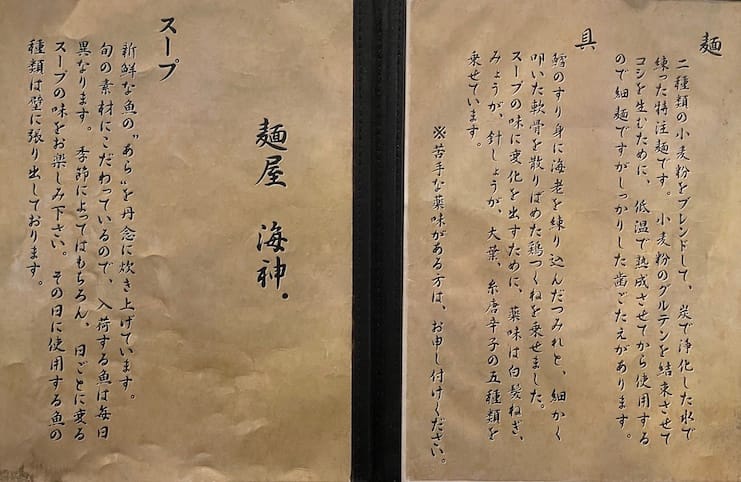 麺
二種類の小麦粉をブレンドして、炭で浄化した水で
練った特注麺です。小麦粉のグルテンを結束させて
コシを生むために、低温で熟成させてから使用する
ので細麺ですがしっかりした歯ごたえがあります。
具
鱈のすり身に海老を練り込んだつみれと、細かく
叩いた軟骨を散りばめた鶏つくねを乗せました。
スープの味に変化を出すために、薬味は白髪ねぎ、
みょうが、針しょうが、大葉、糸唐辛子の五種類を
乗せています。
※苦手な薬味がある方は、お申し付けください。
麺屋 海神.
スープ
新鮮な魚の”あら”を丹念に炊き上げています。
旬の素材にこだわっているので、入荷する魚は毎日
異なります。季節によってはもちろん、日ごとに変る
スープの味をお楽しみ下さい。その日に使用する魚の
種類は壁に張り出しております。